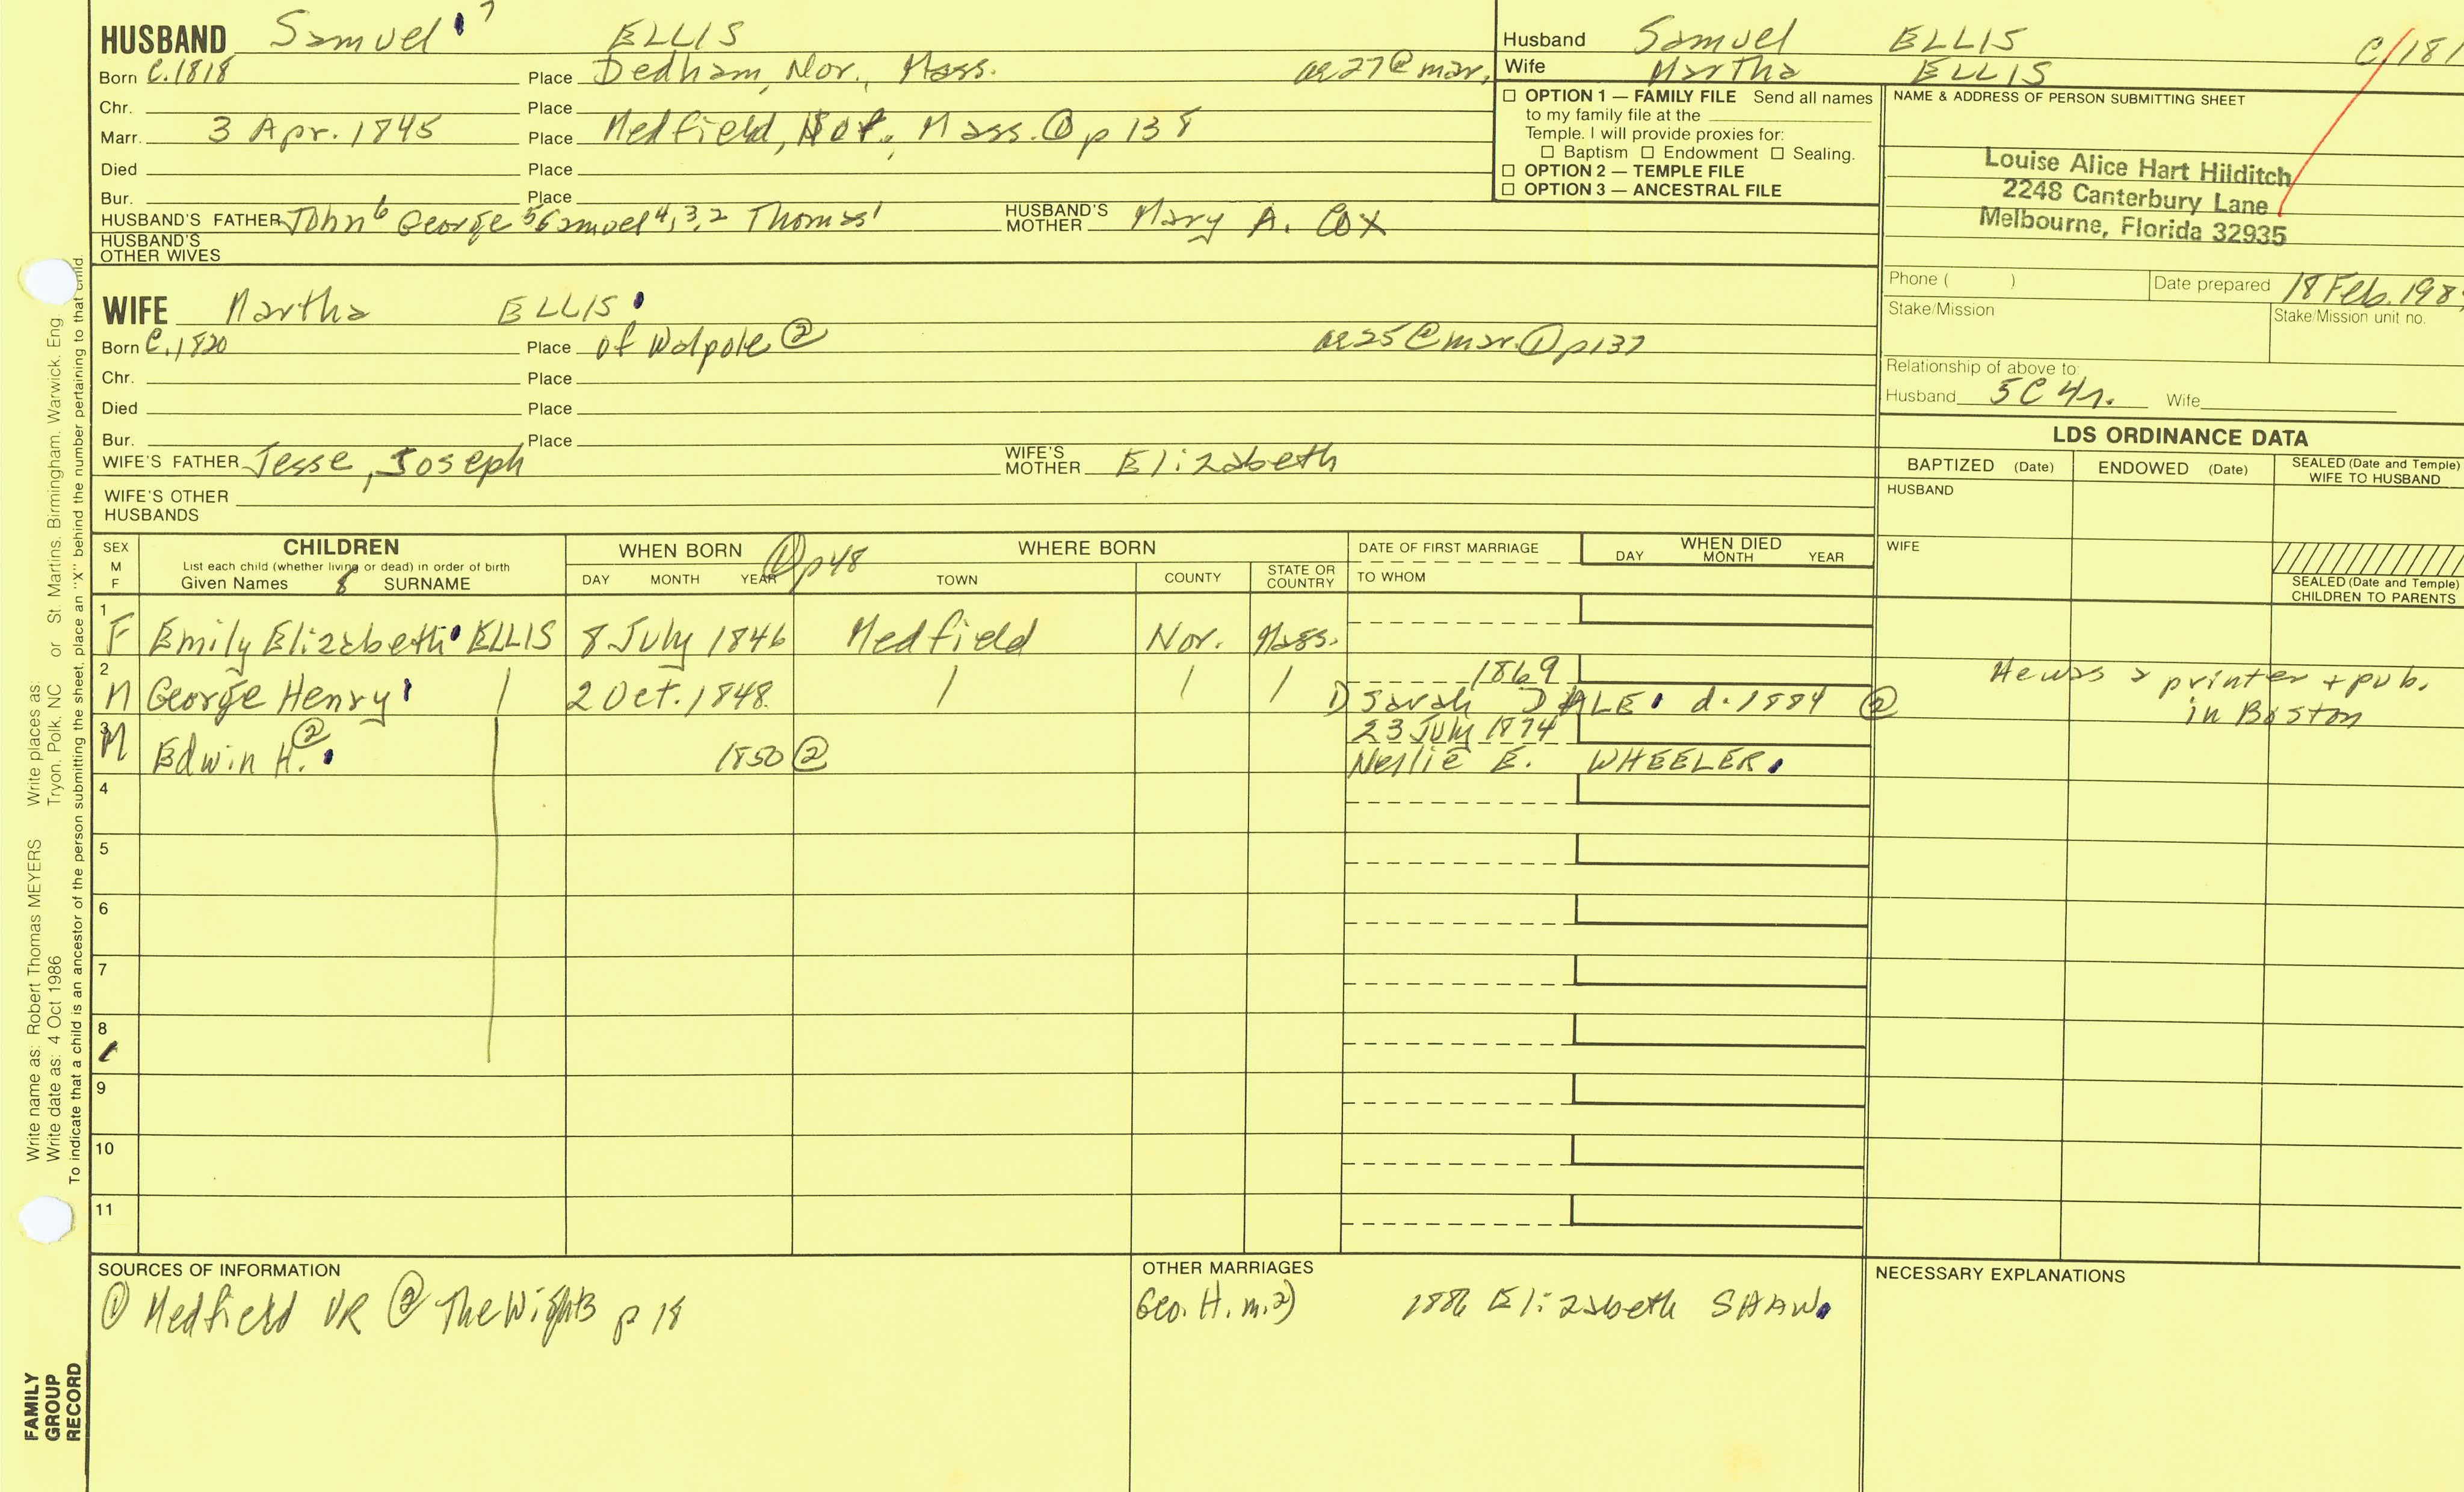 HUSBAND Samuel 7 ELLIS
Born C.1818 Place Dedham, Nor., Mass. ae 27 @ mar.
Chr. Place
Marr. 3 Apr. 1845 Place Medfield, Nor., Mass. ① p 138
Died Place
Bur. Place
HUSBAND'S FATHER John 6 George 5 Samuel 4,3,2 Thomas 1 HUSBAND'S MOTHER Mary A. Cox
HUSBAND'S OTHER WIVES
Husband Samuel ELLIS C/181
Wife Martha ELLIS
☐ OPTION 1 — FAMILY FILE Send all names
to my family file at the
Temple. I will provide proxies for:
☐ Baptism ☐ Endowment ☐ Sealing.
☐ OPTION 2 — TEMPLE FILE
☐ OPTION 3 — ANCESTRAL FILE
NAME & ADDRESS OF PERSON SUBMITTING SHEET
Louise Alice Hart Hilditch
2248 Canterbury Lane
Melbourne, Florida 32935
Phone ( ) Date prepared 18 Feb. 198
Stake/Mission Stake/Mission unit no.
Relationship of above to:
Husband 5C 4r. Wife
WIFE Martha ELLIS
Born C.1820 Place of Walpole ② ae 25 @ mar. ① p 137
Chr. Place
Died Place
Bur. Place
WIFE'S FATHER Jesse, Joseph WIFE'S MOTHER Elizabeth
WIFE'S OTHER HUSBANDS
LDS ORDINANCE DATA
BAPTIZED (Date) ENDOWED (Date) SEALED (Date and Temple) WIFE TO HUSBAND
HUSBAND
WIFE
SEALED (Date and Temple) CHILDREN TO PARENTS
SEX M F
CHILDREN
List each child (whether living or dead) in order of birth
Given Names 8 SURNAME
WHEN BORN ① p 48
DAY MONTH YEAR
WHERE BORN
TOWN COUNTY STATE OR COUNTRY
DATE OF FIRST MARRIAGE
TO WHOM
WHEN DIED
DAY MONTH YEAR
1 F Emily Elizabeth ELLIS 8 July 1846 Medfield Nor. Mass.
2 M George Henry / 2 Oct. 1848 / / / 1869
1) Sarah DALE d. 1884 ② printer + pub.
in Boston
3 M Edwin H. ② 1850 ② 23 July 1874
Nellie E. WHEELER
4
5
6
7
8
9
10
11
SOURCES OF INFORMATION
① Medfield VR ② The Wights p 18
OTHER MARRIAGES
Geo. H. m. 2) 1886 Elizabeth SHAW
NECESSARY EXPLANATIONS
FAMILY
GROUP
RECORD
Write name as: Robert Thomas MEYERS Write places as: Tryon, Polk, NC or St. Martins, Birmingham, Warwick, Eng
Write date as: 4 Oct 1986
To indicate that a child is an ancestor of the person submitting the sheet, place an "X" behind the number pertaining to that child.